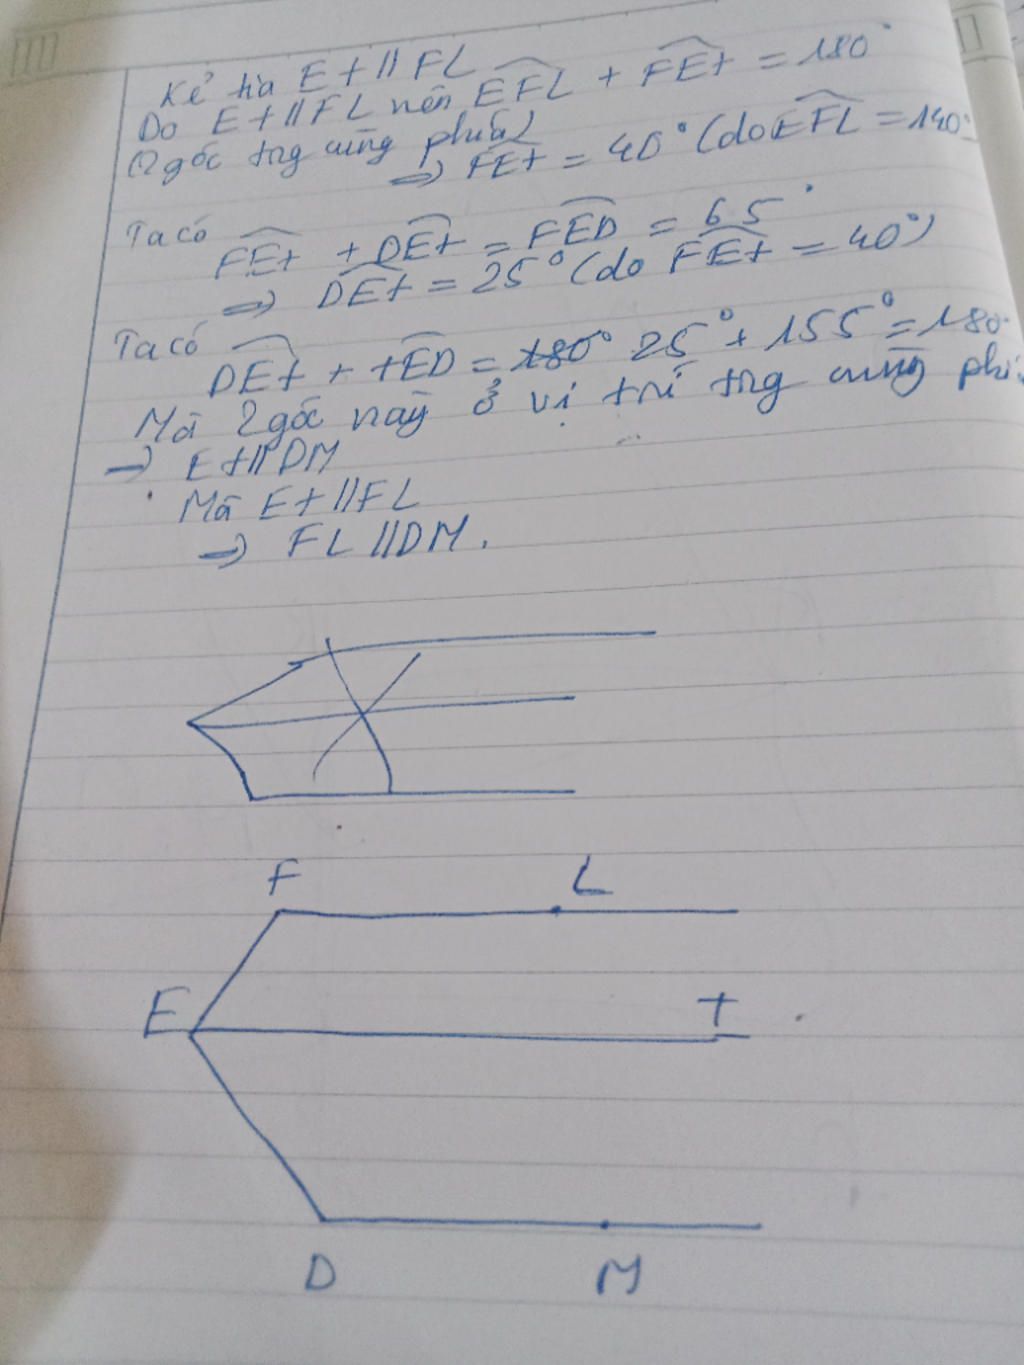 Kẻ tia Et // FL
Do Et // FL nên EFL + FEt = 180°
(2 góc tng cùng phía)
=> FEt = 40° (do EFL = 140°
Ta có
FEt + DEt = FED = 65°
=> DEt = 25° (do FEt = 40°)
Ta có
DEt + tED = 180° 25° + 155° = 180°
Mà 2 góc này ở vị trí tng cùng phí
=> Et // DM
Mà Et // FL
=> FL // DM.
F L
E t
D M